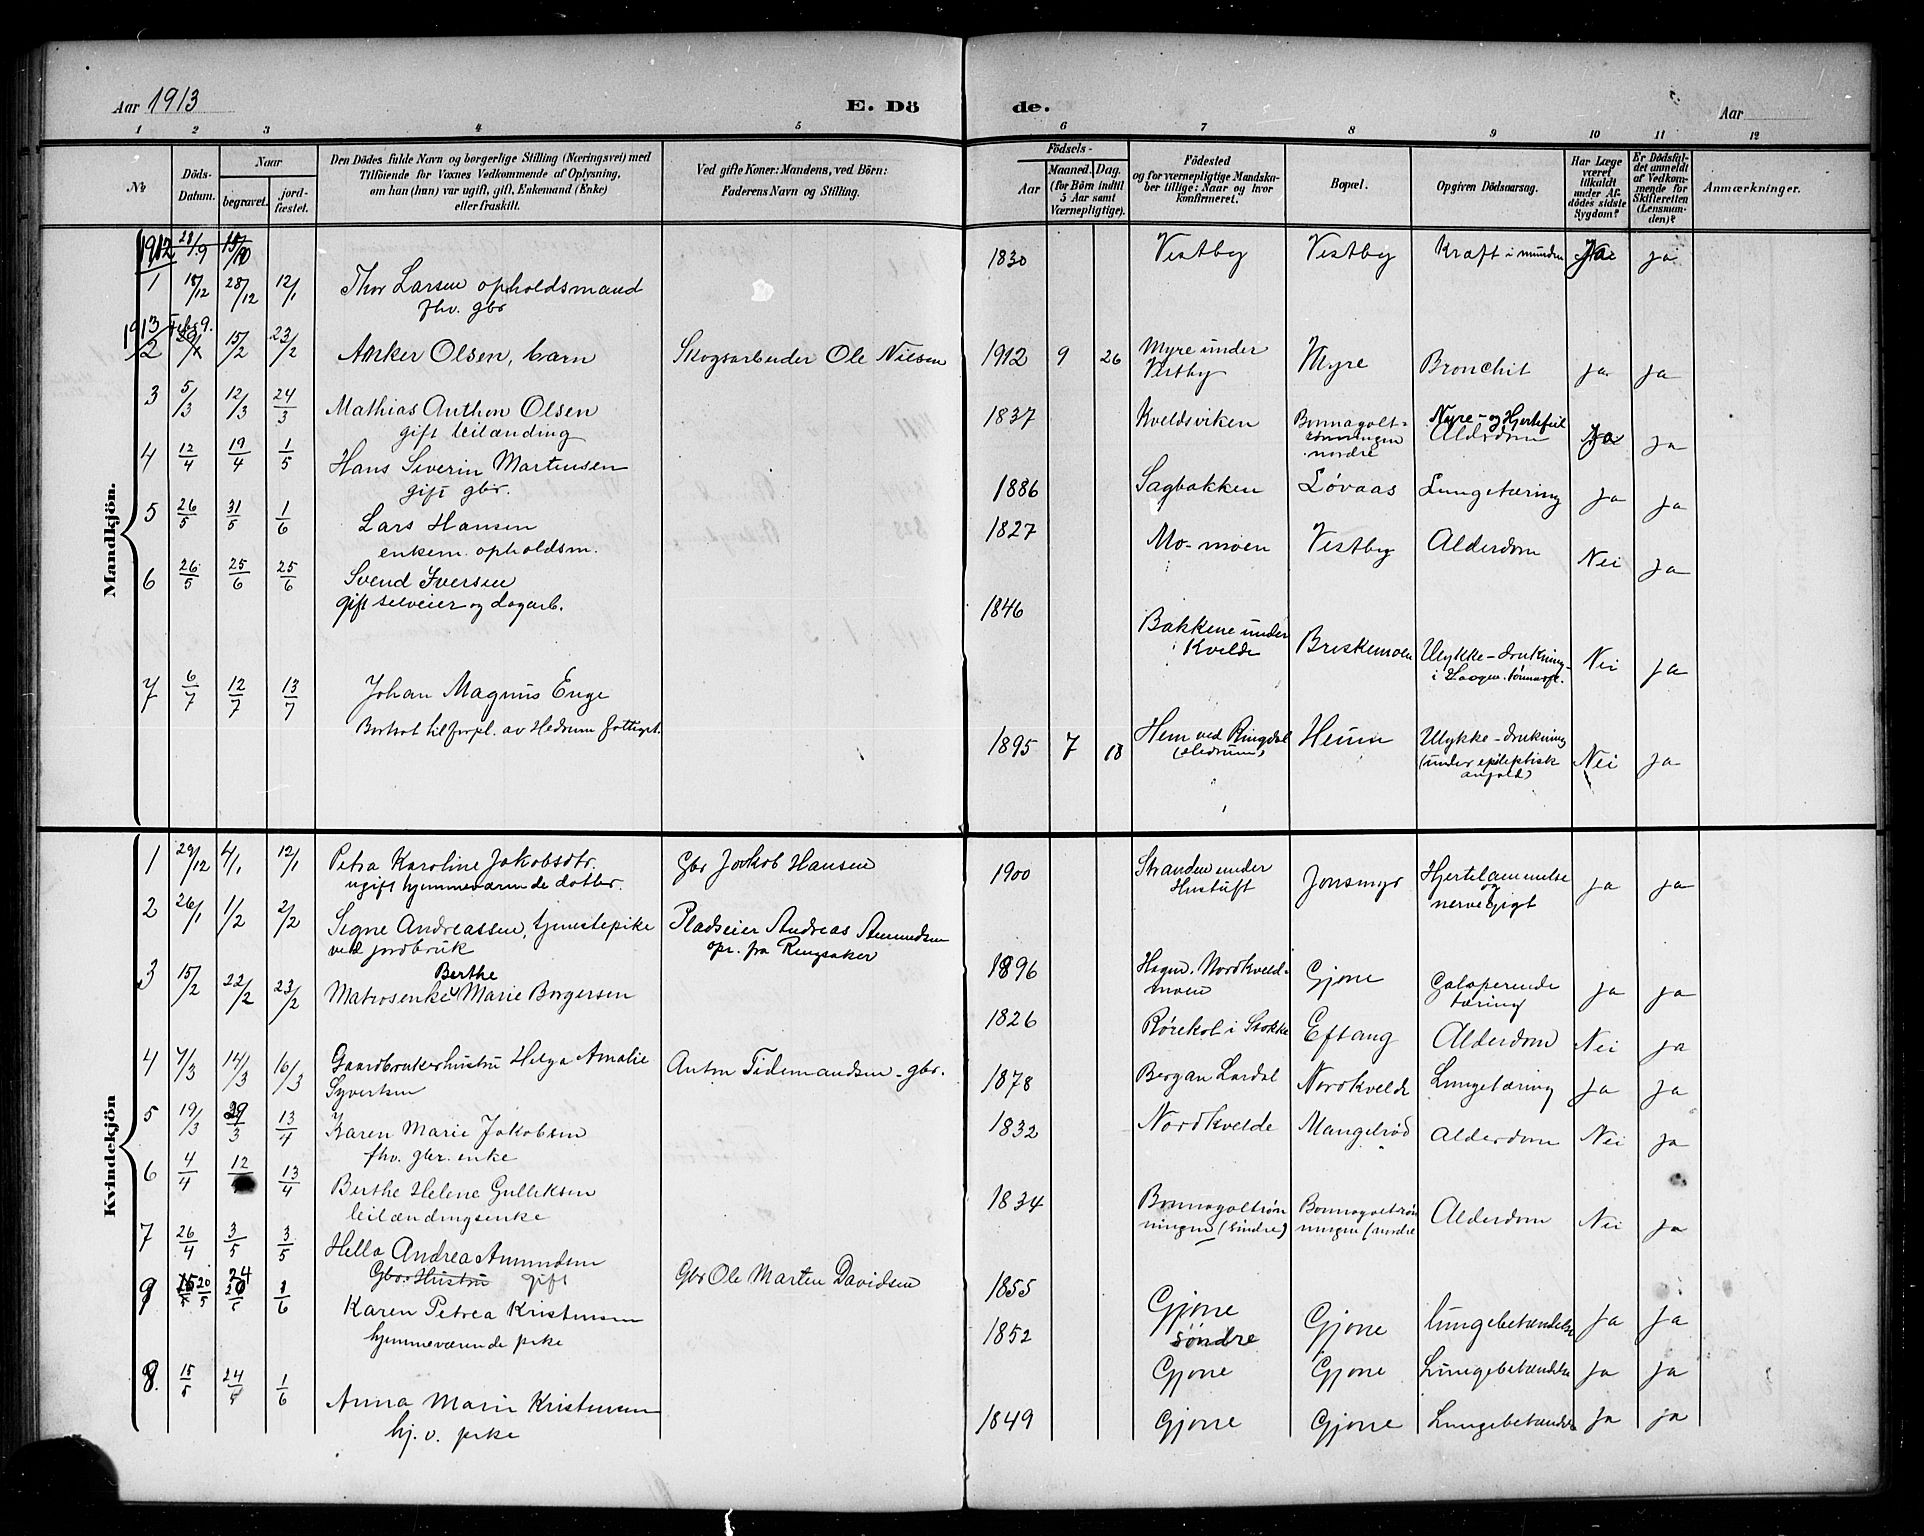 Aar 1913
E. Dö
de.
Aar
1 2 3 4 5 6 7 8 9 10 11 12
No
Döds-Datum.
Naar
begravet.
jord-fæstet.
Den Dödes fulde Navn og borgerlige Stilling (Næringsvei) med
Tilföiende for Voxnes Vedkommende af Oplysning,
om han (hun) var ugift, gift, Enkemand (Enke)
eller fraskilt.
Ved gifte Koner: Mandens, ved Börn:
Faderens Navn og Stilling.
Födsels-
Aar
Maaned. Dag.
(for Börn indtil
5 Aar samt
Værnepligtige).
Födested
og for værnepligtige Mandska-
ber tillige: Naar og hvor
konfirmeret.
Bopæl.
Opgiven Dödsaarsag.
Har Læge
været
tilkaldt
under Af-
dödes sidste
Sygdom?
Er Dödsfal-
det anmeldt
af Vedkom-
mende for
Skifteretten
(Lensman-
den)?
Anmærkninger.
Mandkjön.
1912 28/9 15/10
1 18/12 28/12 12/1 Thor Larsen opholdsmand 1830 Vestby Vestby Kræft i munden Ja ja
fhv. gbr
1913 Febr 9.
2 15/2 23/2 Anker Olsen, barn Skogsarbeider Ole Nilsen 1912 9 26 Myre under Vestby Myre Bronchit ja ja
3 5/3 12/3 24/3 Mathias Anthon Olsen 1837 Kveldsviken Bonnagolt-rønningen nordre Nyre- og Hjertefeil Alderdom Ja ja
gift leilænding
4 12/4 19/4 1/5 Hans Severin Martensen 1886 Sagbakken Løvaas Lungetæring ja ja
gift gbr.
5 26/5 31/5 1/6 Lars Hansen 1827 Mo-moen Vestby Alderdom Nei ja
enkem. opholdsm.
6 26/5 25/6 25/6 Svend Iversen 1846 Bakkene under Kvelde Briskemoen Ulykke-drukning- i Laagen. Nei ja
gift selveier og dagarb.
7 6/7 12/7 13/7 Johan Magnus Enge 1895 7 18 Hem ved Ringdal (Hedrum) Heum Ulykke-drukning (under epileptisk anfald) Nei ja
Bortsat til forpl. av Hedrum fattigv.
Kvindekjön
1 29/12 4/1 12/1 Petra Karoline Jakobsdtr. Gbr Jakob Hansen 1900 Stranden under Hustuft Jonsmyr Hjertelammelse og nervegigt ja ja
ugift hjemmeværende datter.
2 26/1 1/2 2/2 Signe Andreassen, tjenestepike Pladseier Andreas Amundsen 1896 Hagen. Nordkveld-moen Gjone Galoperende tæring ja ja
ved jordbruk opr. fra Ringsaker
3 15/2 22/2 23/2 Matrosenke Berthe Marie Borgersen 1826 Rørekol i Stokke Eftang Alderdom Nei ja
4 7/3 14/3 16/3 Gaardbrukerhustru Helga Amalie Anton Tidemandsen - gbr. 1878 Bergan Lardal Nordkvelde Lungetæring ja ja
Syvertsen
5 19/3 29/3 13/4 Karen Marie Jakobsen 1832 Nordkvelde Mangelrød Alderdom Nei ja
fhv. gbr. enke
6 4/4 12 13/4 Berthe Helene Gulliksen 1834 Bonnagoltrøn-ningen (Sindre) Bonnagoltrøn-ningen (nordre Alderdom Nei ja
leilændingsenke
7 26/4 3/5 3/5 Hella Andrea Amundsen Gbr Ole Marten Davidsen 1855 Gjone søndre Gjone lungebetændelse Ja Ja
Gbr. Hustru gift
9 20/5 24/5 1/6 Karen Petrea Kristensen 1852 Gjone Gjone Lungebetændelse Ja Ja
hjemmeværende pike
8. 15/5 24/5 1/6 Anna Marie Kristensen 1849 Gjone Gjone Lungebetændelse Ja ja
hj. v. pike